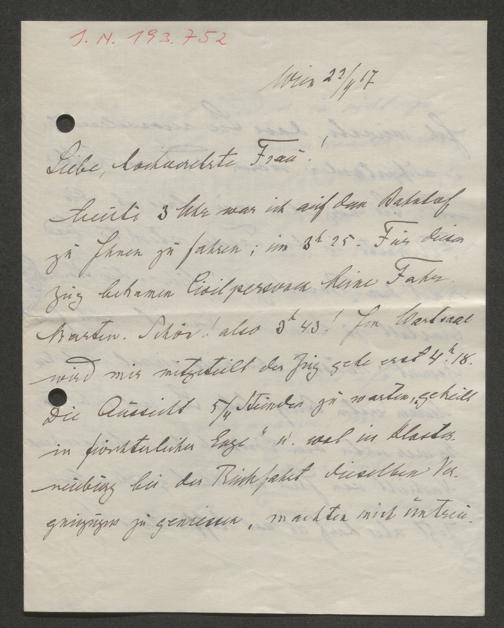 J. N. 193.752
Wien 22/9 17
Liebe, hochverehrte Frau!
heute 3 Uhr war ich auf dem Bahnhof
zu Ihnen zu fahren; im 3h 25. Für diesen
Zug bekamen Civilpersonen keine Fahr
karten. Schön! also 3h 43! Im Wartsaal
wird mir mitgeteilt der Zug gehe erst 4h 18.
Die Aussicht 5/4 Stunden zu warten, geteilt
in fürchterlicher Enge" u. wohl in Kloster
neuburg bei der Rückfahrt dieselben Ver-
gnügungen zu geniessen, machten mich